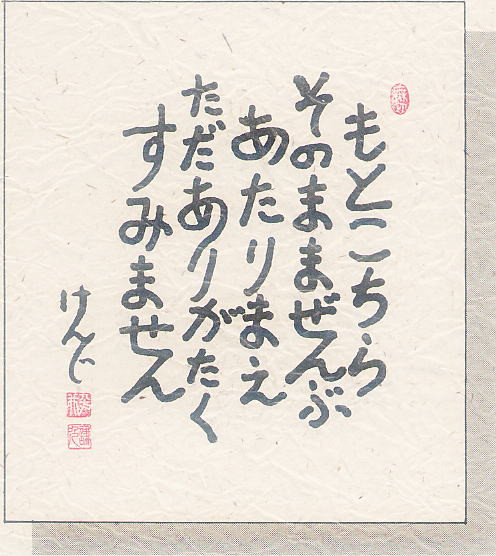 もとこちら
そのままぜんぶ
あたりまえ
ただありがたく
すみません
けんじ